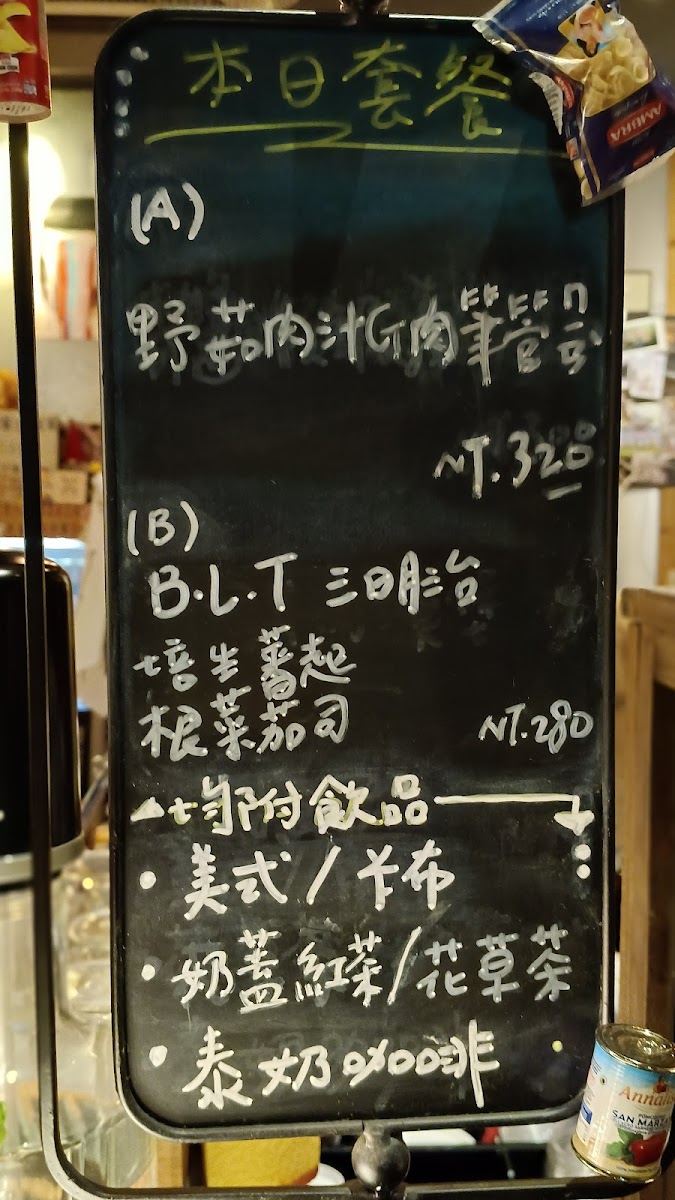 本日套餐
(A)
野菇肉汁G肉筆管
NT.320
(B)
B.L.T 三明治
培生蕃起
根菜茄司
NT.280
均附飲品
美式/卡布
奶蓋紅茶/花草茶
泰奶咖啡
AMURA
Annalisa
POMODORI
SAN MARZANO